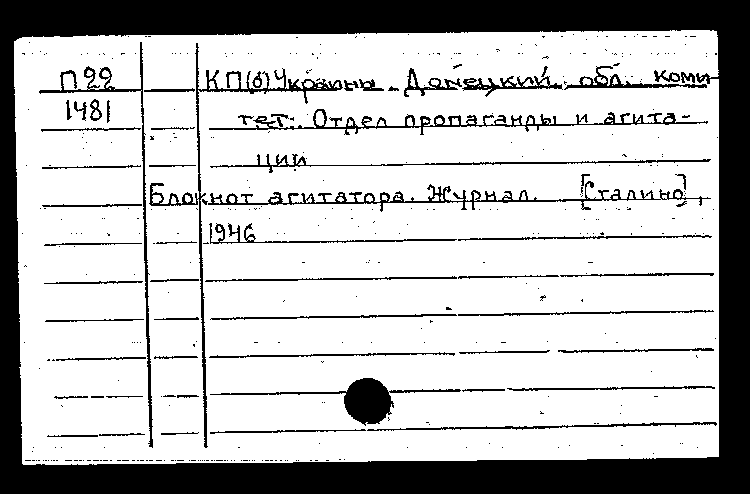 П22 КП(б) Украины. Донецкий обл. коми-
1481 тет. Отдел пропаганды и агита-
ции
Блокнот агитатора. Журнал. [Сталино],
1946